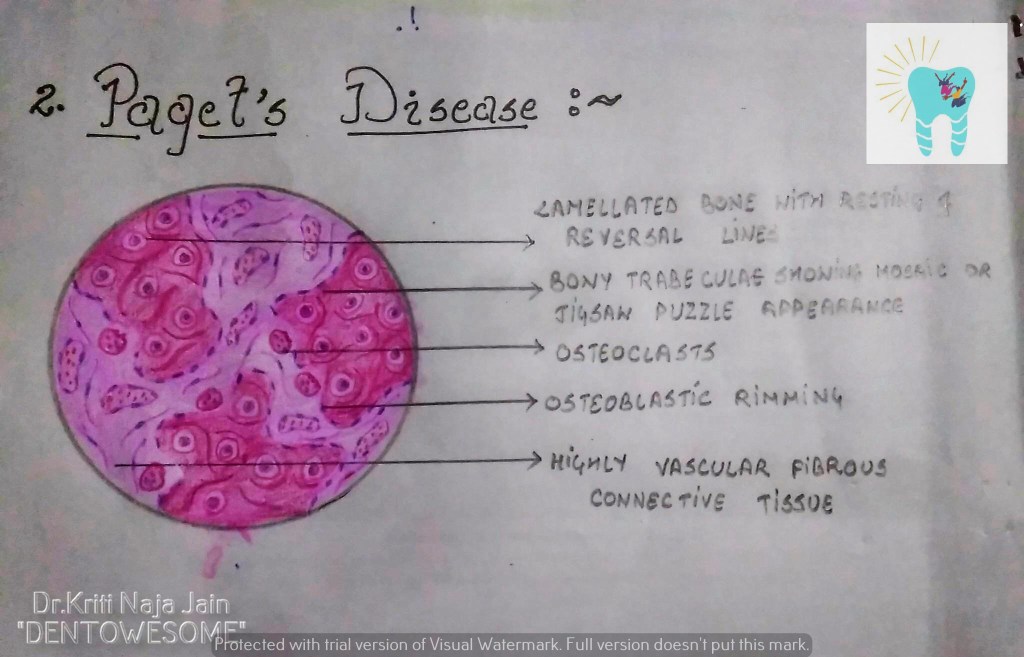 2. Paget's Disease :~
LAMELLATED BONE WITH RESTING &
REVERSAL LINES
BONY TRABECULAE SHOWING MOSAIC OR
JIGSAW PUZZLE APPEARANCE
OSTEOCLASTS
OSTEOBLASTIC RIMMING
HIGHLY VASCULAR FIBROUS
CONNECTIVE TISSUE
Dr.Kriti Naja Jain
"DENTOWESOME"
Protected with trial version of Visual Watermark. Full version doesn't put this mark.